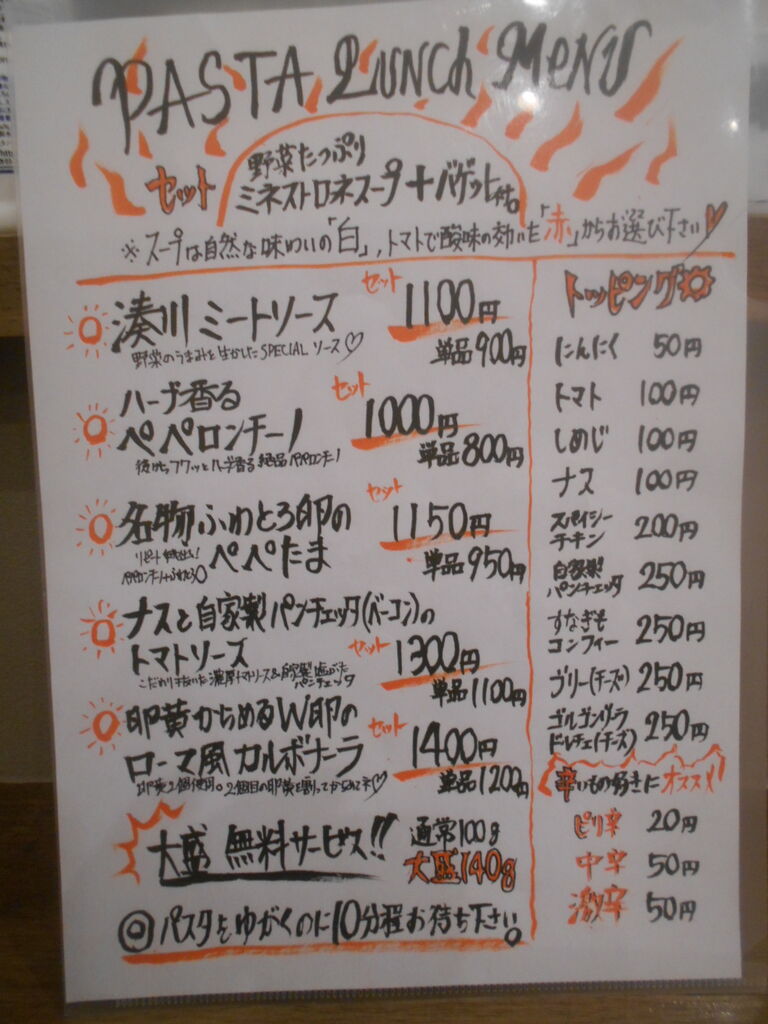 PASTA LUNCH MENU
セット
野菜たっぷり
ミネストロネスープ+バゲット付。
※スープは自然な味わいの「白」,トマトで酸味の効いた「赤」からお選び下さい♡
湊川 ミートソース
セット 1100円
単品900円
野菜のうまみを生かしたSPECIAL ソース♡
ハーブ香る
ペペロンチーノ
セット 1000円
単品800円
後からフワッとハーブ香る絶品ペペロンチーノ
名物ふわとろ卵の
ペペたま
セット 1150円
単品950円
リピート続出!
ナスと自家製パンチェッタ(ベーコン)の
トマトソーズ
セット 1300円
単品1100円
こだわり抜いた濃厚トマトソース&自家製塩づけ
パンチェッタ
卵黄からめるW卵の
ローマ風カルボナーラ
セット 1400円
単品1200円
卵黄2個使用。2個目の卵黄を割ってからめてネ♡
大盛 無料サービス!!
通常100g
大盛140g
◎パスタをゆがくのに10分程お待ち下さい。
トッピング
にんにく 50円
トマト 100円
しめじ 100円
ナス 100円
スパイシー
チキン 200円
自家製
パンチェッタ 250円
すなぎも
コンフィー 250円
ブリー(チーズ) 250円
ゴルゴンゾーラ
ドルチェ(チーズ) 250円
辛いもの好きにオススメ!
ピリ辛 20円
中辛 50円
激辛 50円